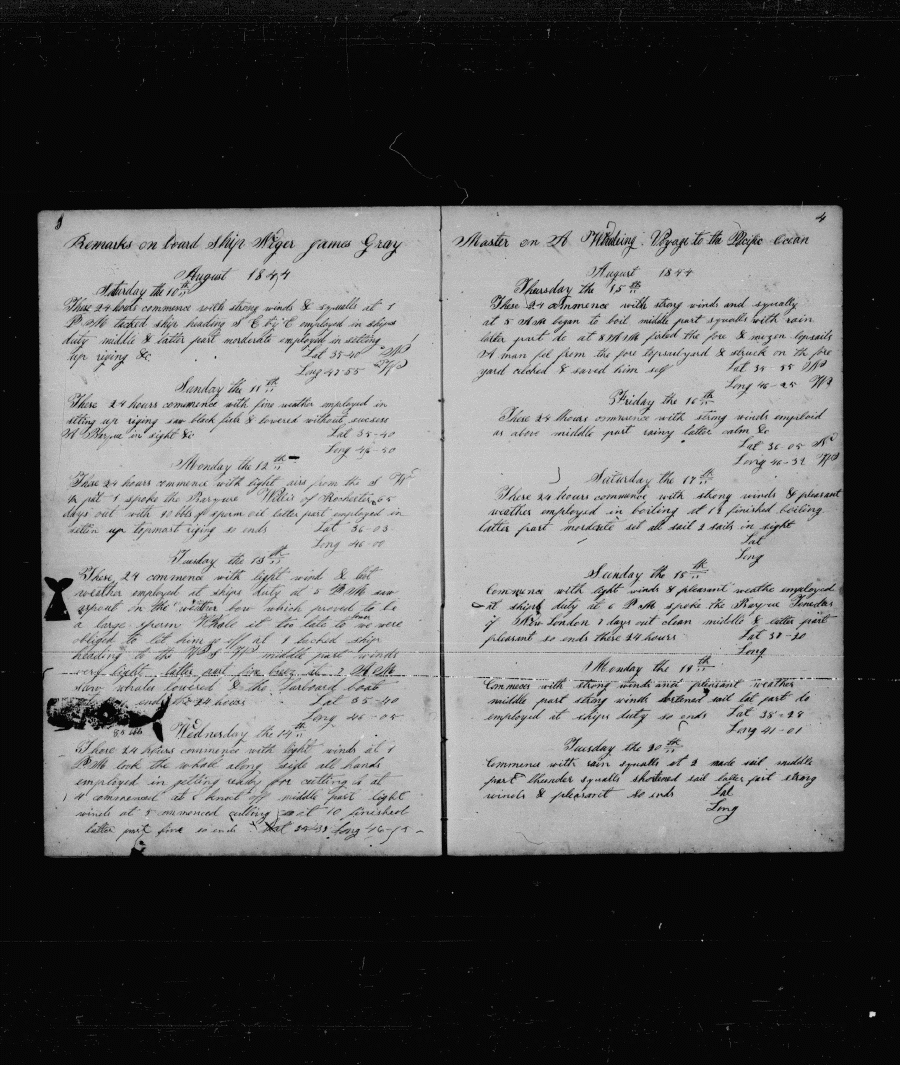 3
Remarks on board Ship Niger James Gray
August 1844
Saturday the 10th
These 24 hours commence with strong winds & squalls at 1
P M tacked ship heading S E by E employed in ships
duty middle & latter part morderate employed in setting
up riging &c Lat 35-40 N
Long 47-55 W
Sunday the 11th
These 24 hours commence with fine weather employed in
setting up riging saw black fish & lowered without sucsess
in sight &c Lat 35-40
Long 46-50
Monday the 12th
These 24 hours commence with light airs from the S W
1 spoke the of Rochester 65
days out with 40 bbls of sperm oil latter part employed in
setten up topmast riging so ends Lat 36-03
Long 46-00
Tuesday the 13th
These 24 commence with light wind &
weather employed at ships duty at 5 P M saw
a spout in the weather bow which proved to be
a large sperm Whale it too late to we were
obliged to let him go off at 1 tacked ship
heading to the W S W middle part winds
very light latter part fine at 7 A M
saw whales lowered & the Larboard boat
ends the 24 hours Lat 35-40
Long 46-04
85 bbls
Wednesday the 14th
These 24 hours commence with light winds at 1
P M took the whale along side all hands
employed in getting ready for cutting at
4 commenced at 6 knock off middle part light
winds at 5 cutting at 10 finished
latter part fine so ends Long 46-15
4
Master on A Whaleing Voyage to the Pacific Ocean
August 1844
Thursday the 15th
These 24 commence with strong winds and squally
at 5 A M began to boil middle part squalls with rain
latter part do at 8 A M furled the fore & mizen topsails
A man fel from the fore topsail yard & struck on the fore
yard cached & saved him self Lat 34-35 N
Long 46-25 W
Friday the 16th
These 24 hours commence with strong winds emploied
as above middle part rainy latter calm &c
Lat 36-05 N
Long 46-32 W
Saturday the 17th
These 24 hours commence with strong winds & pleasant
weather employed in boiling at 12 finished boiling
latter part morderate set all sail 2 sails in sight
Lat
Long
Sunday the 18th
Commence with light winds & pleasant weathe employed
at ships duty at 6 P M spoke the Barque Tenedas
of New London 7 days out clean middle & latter part
pleasant so ends these 24 hours Lat 37-20
Long
Monday the 19th
Commeces with strong winds and pleasant weather
middle part strong winds shortened sail lat part do
employed at ships duty so ends Lat 38-28
Long 41-01
Tuesday the 20th
Commence with rain squalls at 2 made sail middle
part thunder squalls shortened sail latter part strong
winds & pleasant so ends Lat
Long